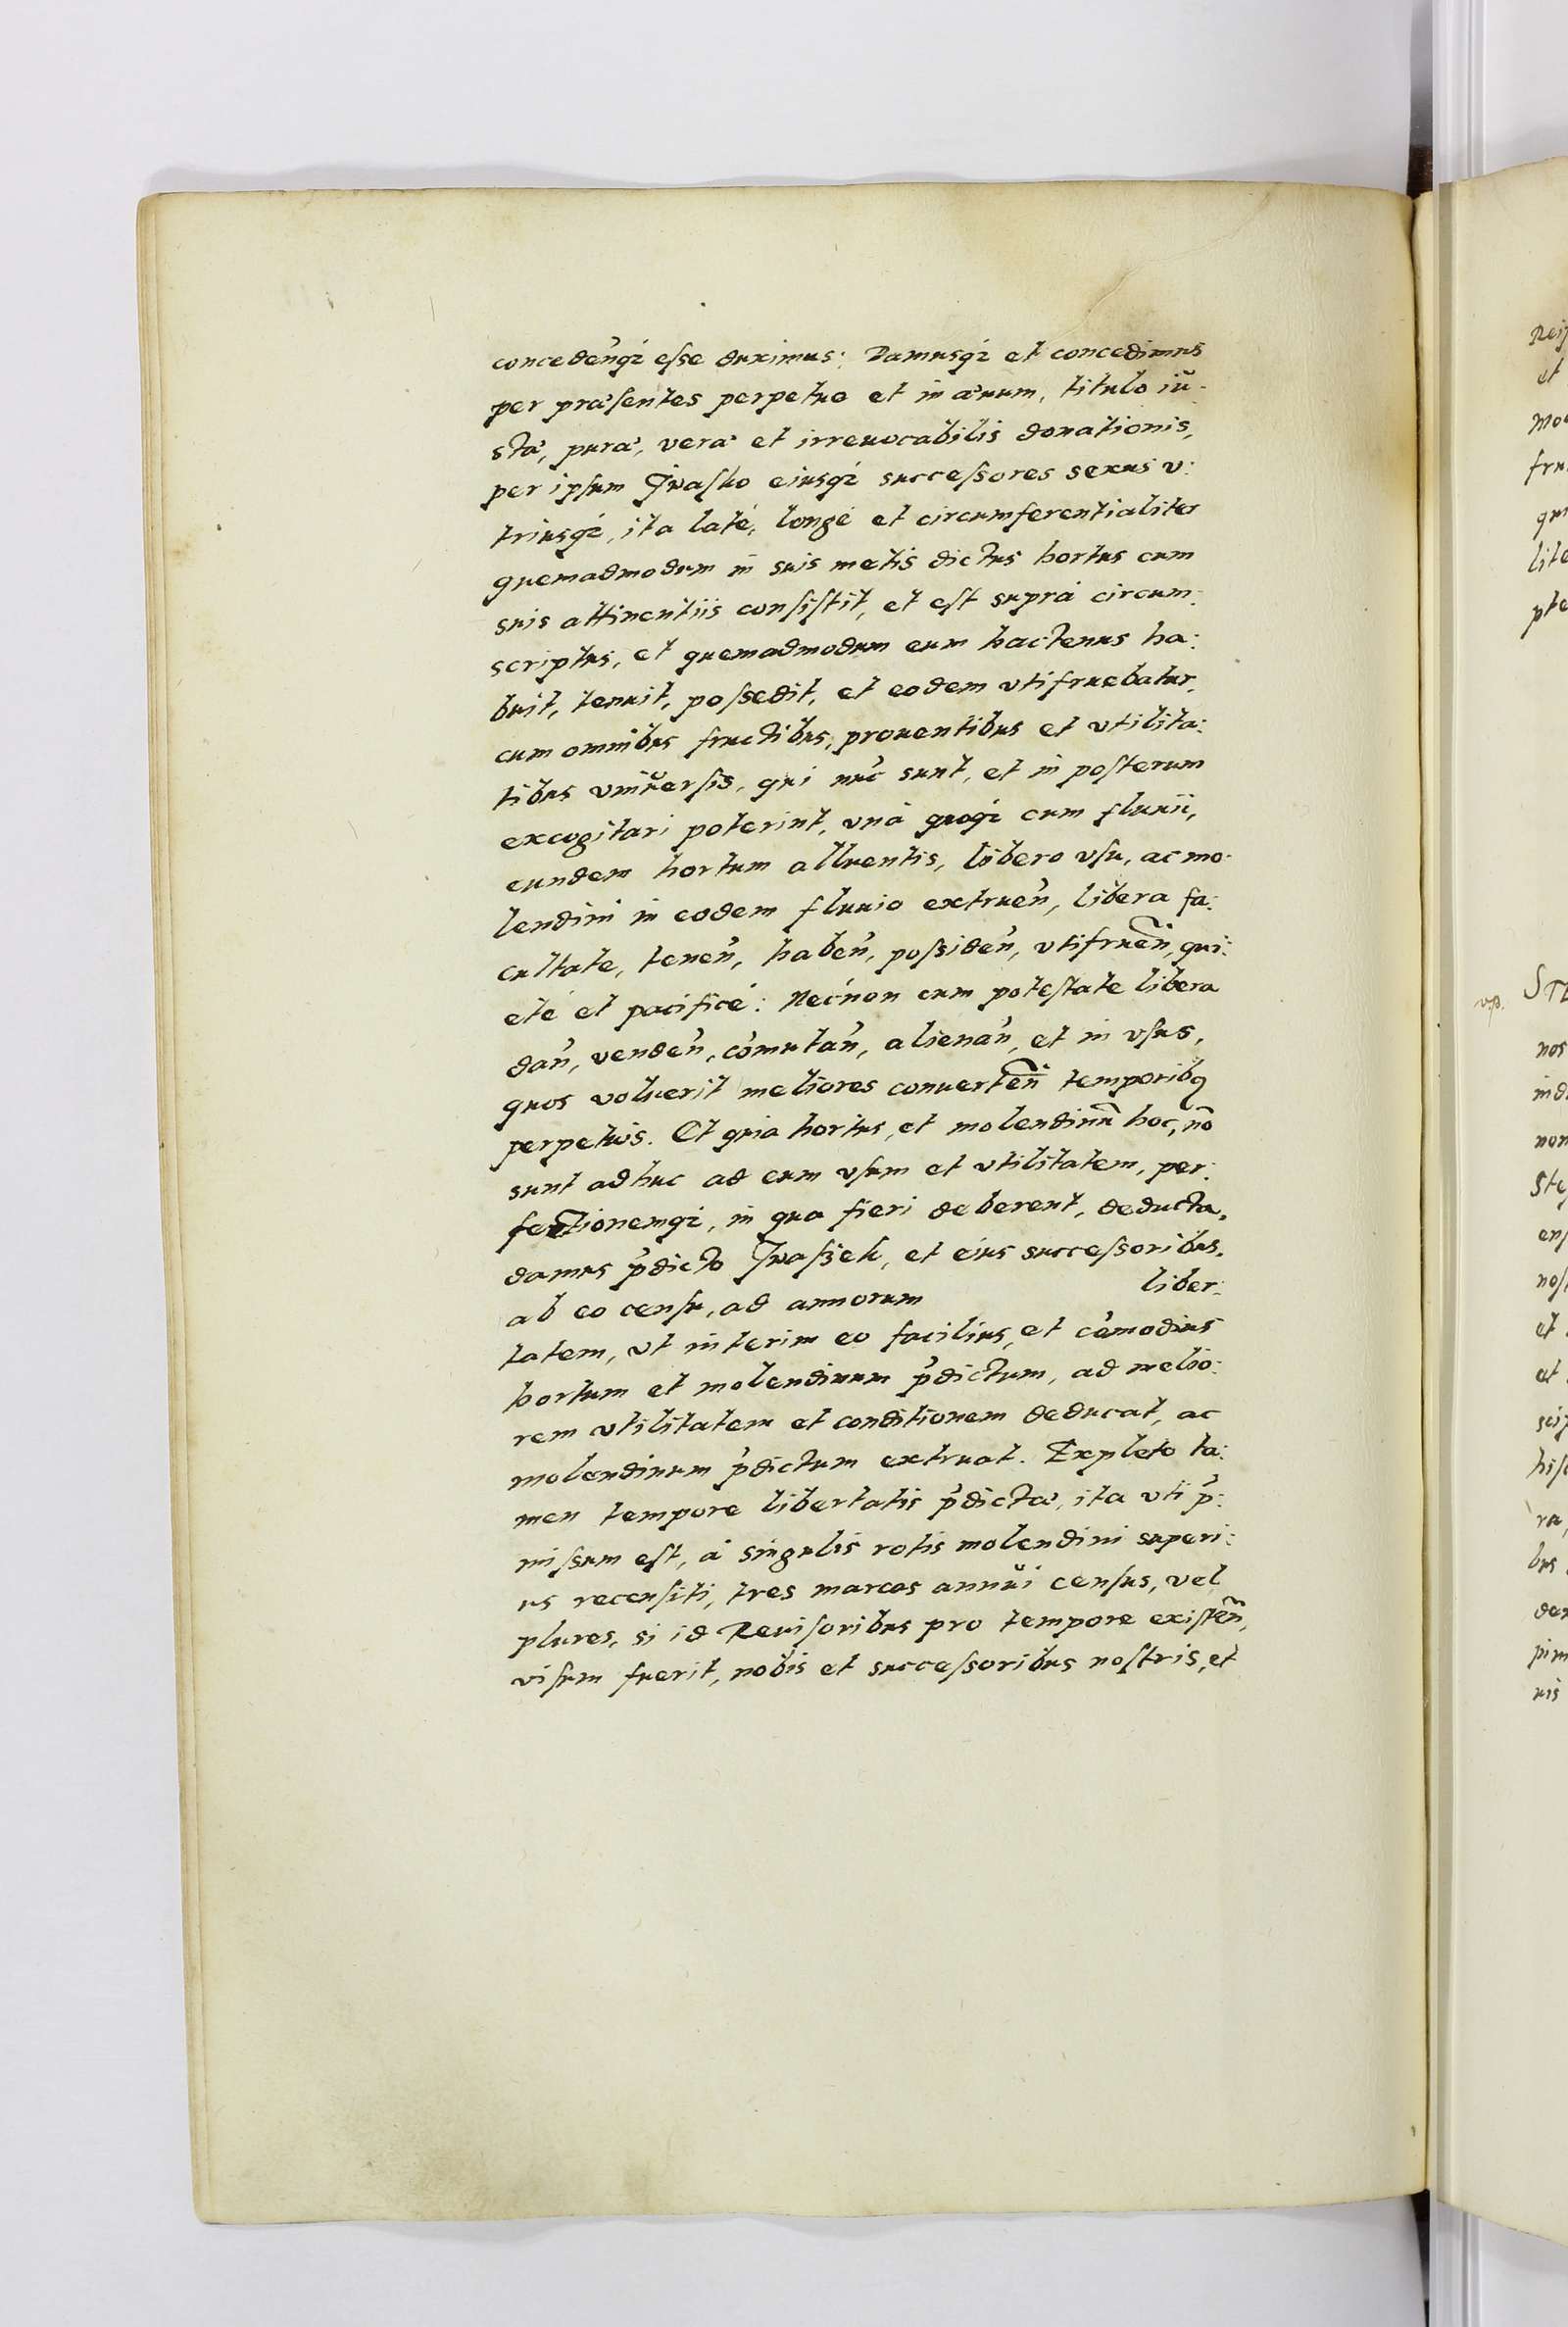 concedeńq; eſse duximus: Damusq; et concedimus
per præſentes perpetuo et in æuum, titulo iŭ-
stæ, puræ, veræ et irreuocabilis donationis,
per ipſum Iwaſko eiusq; succeſsores sexus v:
triusq;, ita laté, longé et circumferentialiter
quemadmodum in suis metis dictus hortus cum
suis attinentiis conſiſtit, et eſt suprà circum:
scriptus, et quemadmodum eum hactenus ha:
buit, tenuit, poſsedit, et eodem vtifruebatur,
cum omnibus fructibus, prouentibus et vtilita:
tibus vniŭerſis, qui nuć sunt, et in poſterum
excogitari poterint, vnà quoq; cum fluuii,
eundem hortum alluentis, libero vſu, ac mo-
lendini in eodem fluuio extrueń, libera fa:
cultate, teneń, habeń, poſsideń, vtifrueñ, qui:
eté et pacificé: Nećnon cum poteſtate libera
dań, vendeń, cómutań, alienań, et in vſus,
quos voluerit meliores conuerteñ temporibq
perpetuis. Et quia hortus, et molendinũ hoc, nõ
sunt adhuc ad eum vſum et vtilitatem, per:
fectionemq;, in qua fieri deberent, deducta,
damus p̓dicto Iwaſzek, et eius succeſsoribus,
ab eo cenſu, ad annorum liber:
tatem, vt interim eo facilius, et cómodius
hortum et molendinum p̓dictum, ad melio:
rem vtilitatem et conditionem deducat, ac
molendinum p̓dictum extruat. Expleto ta:
men tempore libertatis p̓dictæ, ita vti p̓:
miſsum eſt, à singulis rotis molendini superi:
us recenſiti, tres marcas annŭi cenſus, vel
plures, si id Reuiſoribus pro tempore exiſteñ,
viſum fuerit, nobis et succeſsoribus noſtris, et